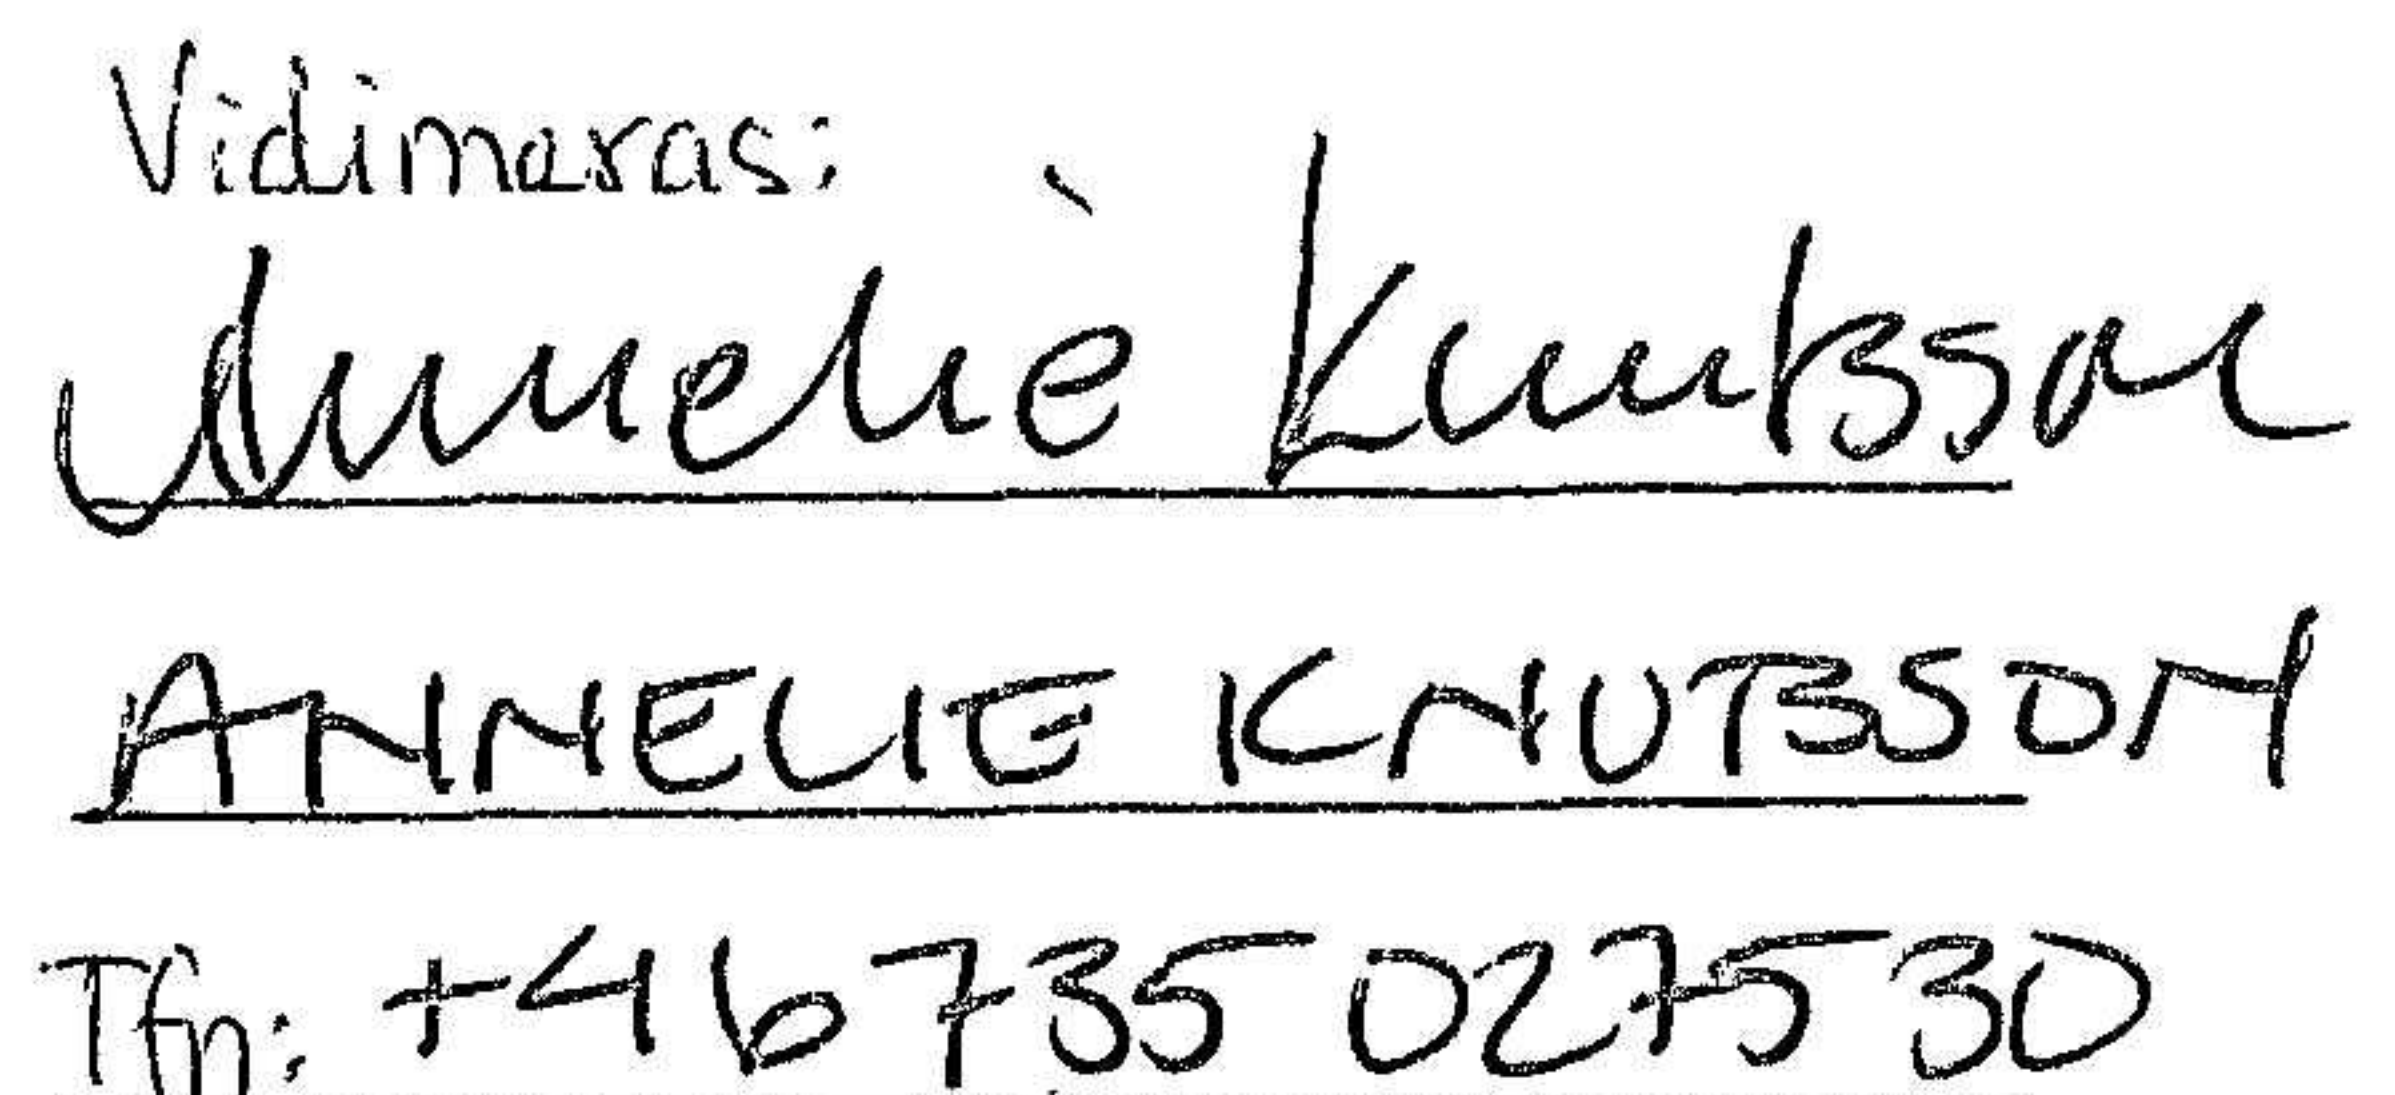 Vidimeras:
Annelie Knutsson
ANNELIE KNUTSSON
Tfn: +46 735 027530